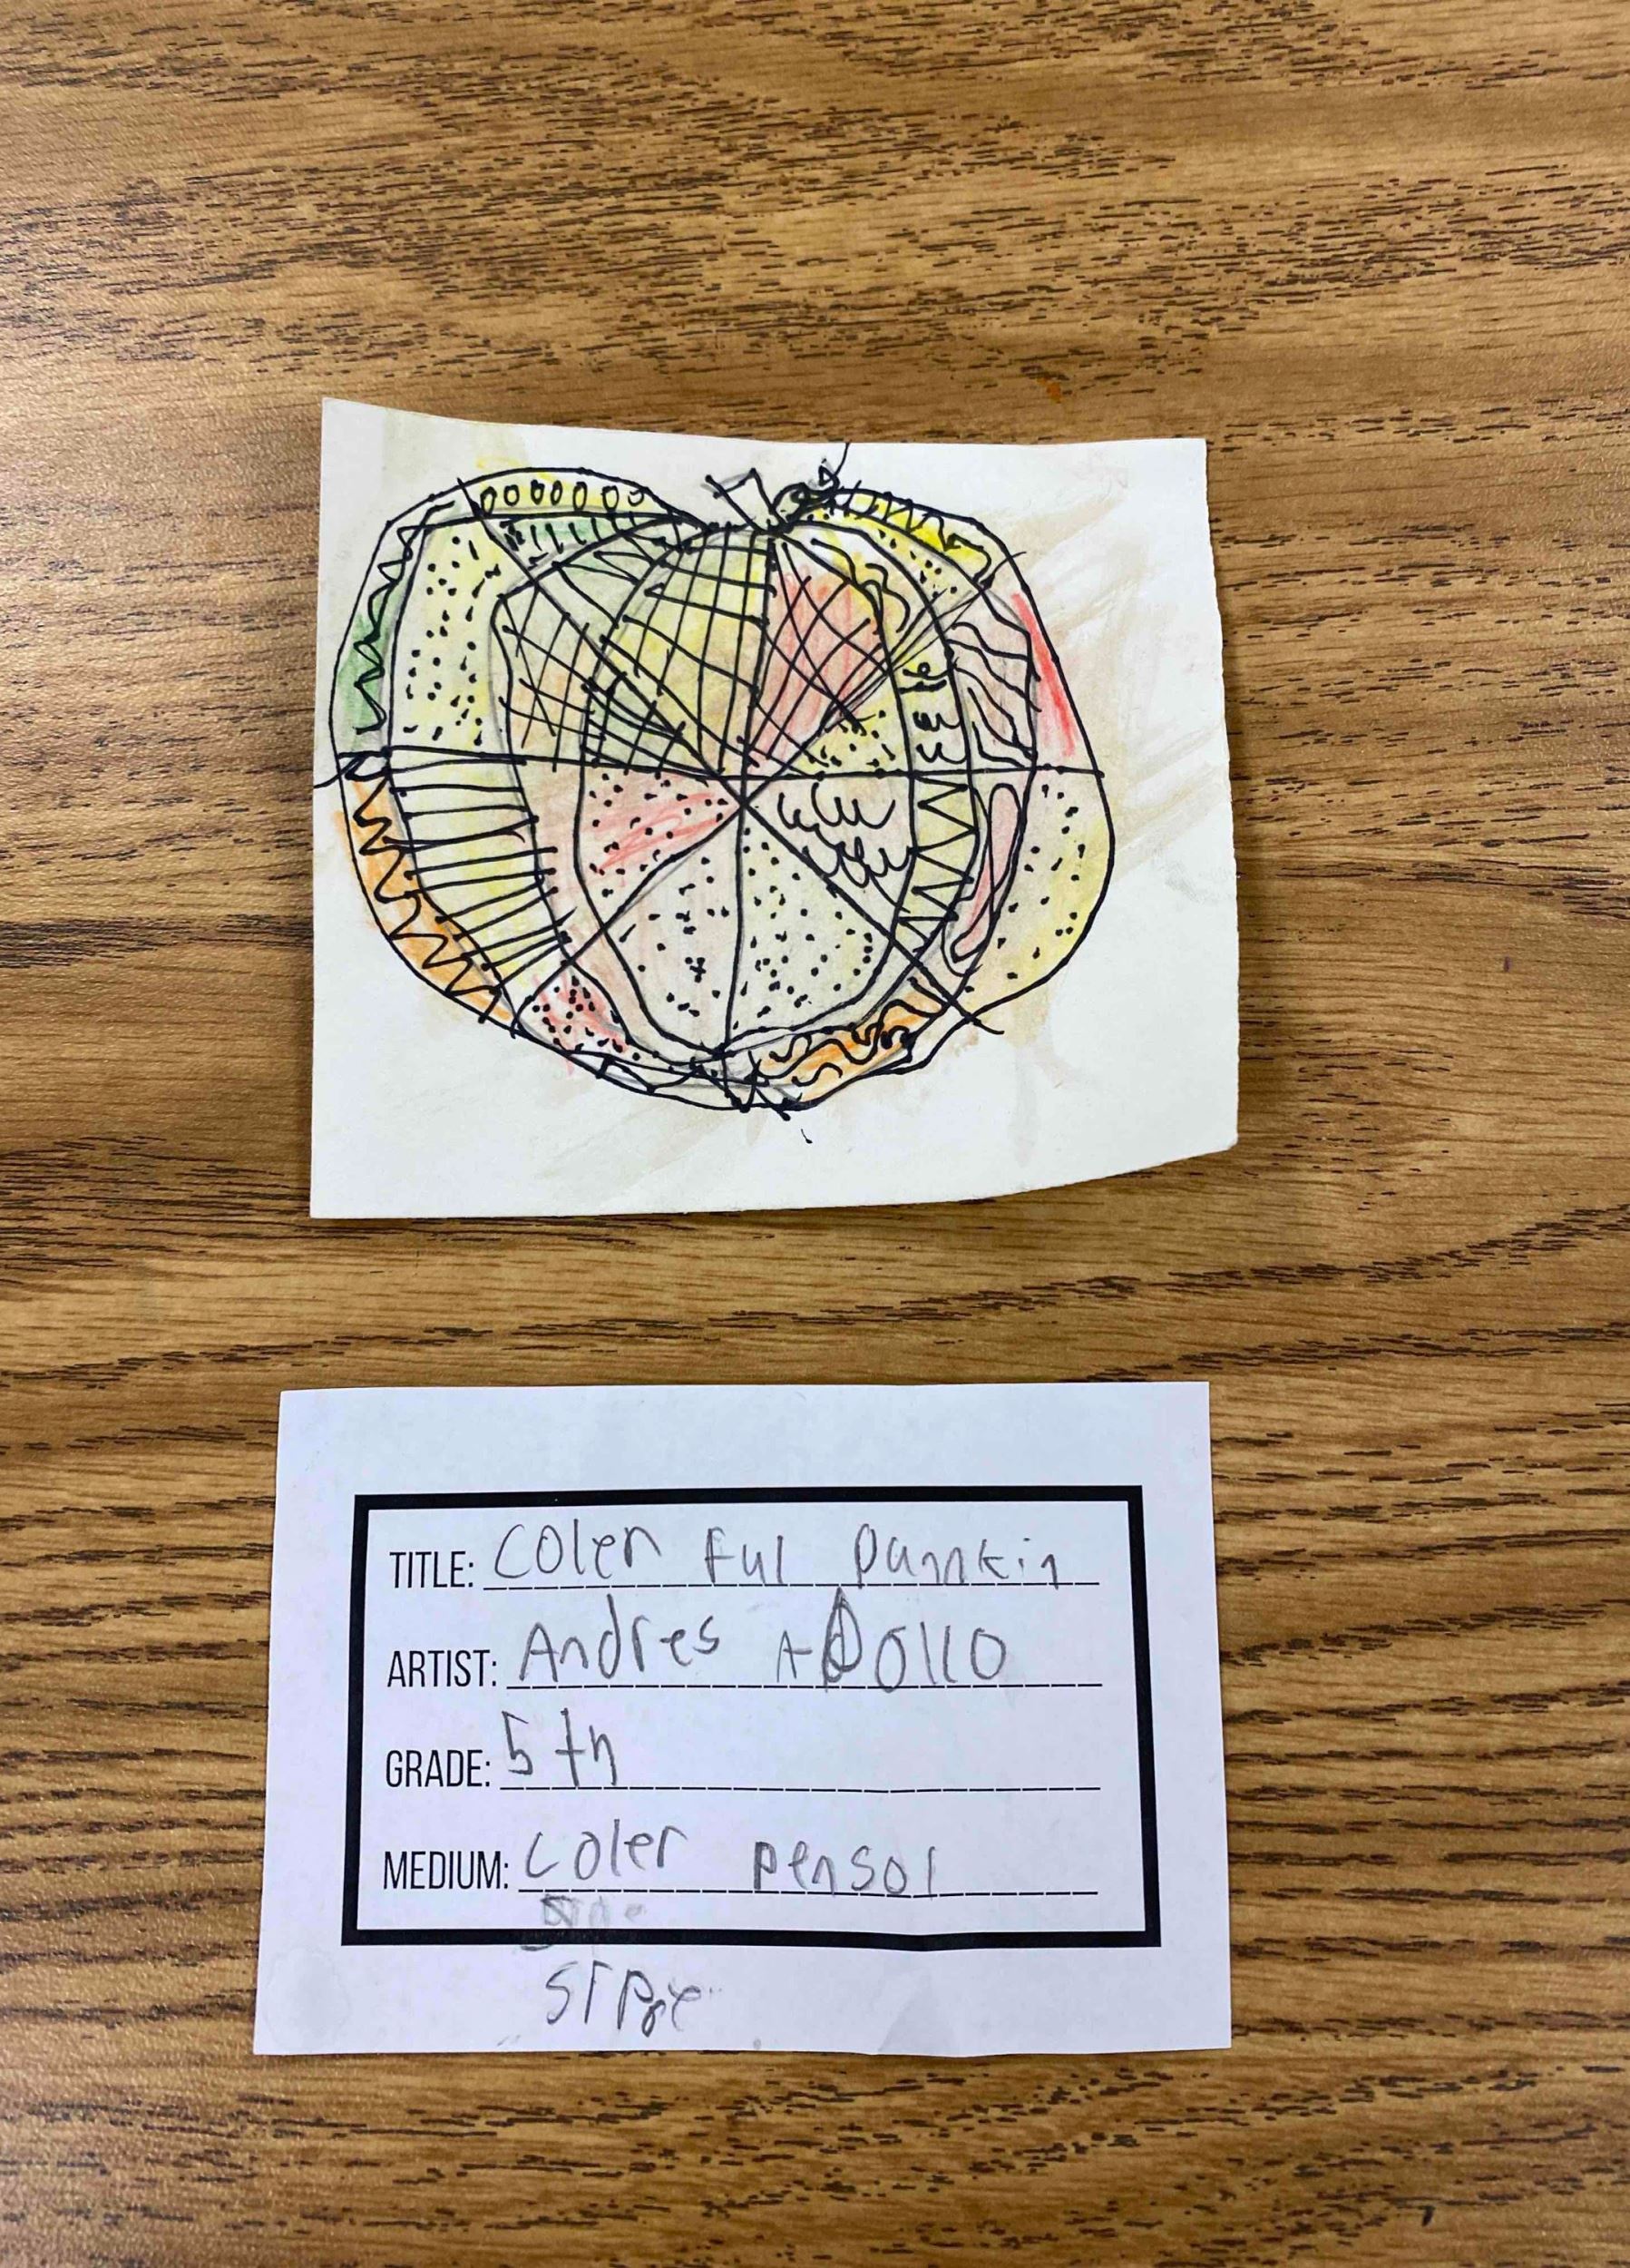 TITLE: Coler ful Pannkin
ARTIST: Andres Apollo
GRADE: 5th
MEDIUM: coler pensol